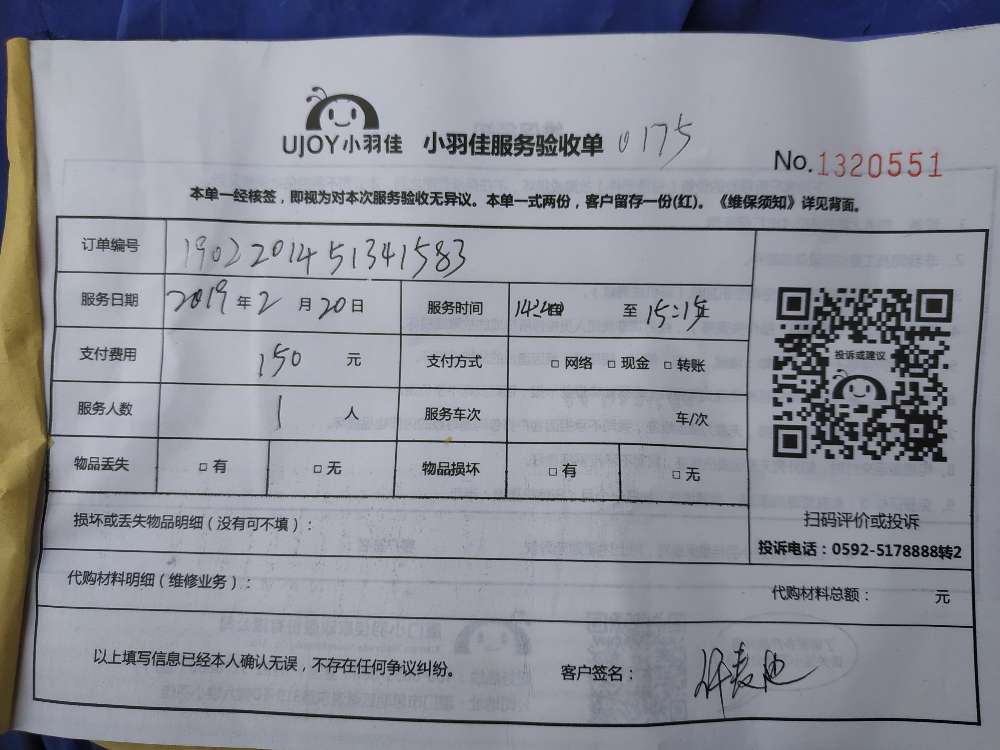 UJOY小羽佳 小羽佳服务验收单 0175
No.1320551
本单一经核签，即视为对本次服务验收无异议。本单一式两份，客户留存一份(红)。《维保须知》详见背面。
订单编号 190220145134 1583
服务日期 2019年2月20日 服务时间 至15:15
支付费用 150 元 支付方式 □网络 □现金 □转账
服务人数 1 人 服务车次 车/次
物品丢失 □有 □无 物品损坏 □有 □无
投诉或建议
扫码评价或投诉
投诉电话：0592-5178888转2
损坏或丢失物品明细（没有可不填）：
代购材料明细（维修业务）： 代购材料总额： 元
以上填写信息已经本人确认无误，不存在任何争议纠纷。 客户签名：